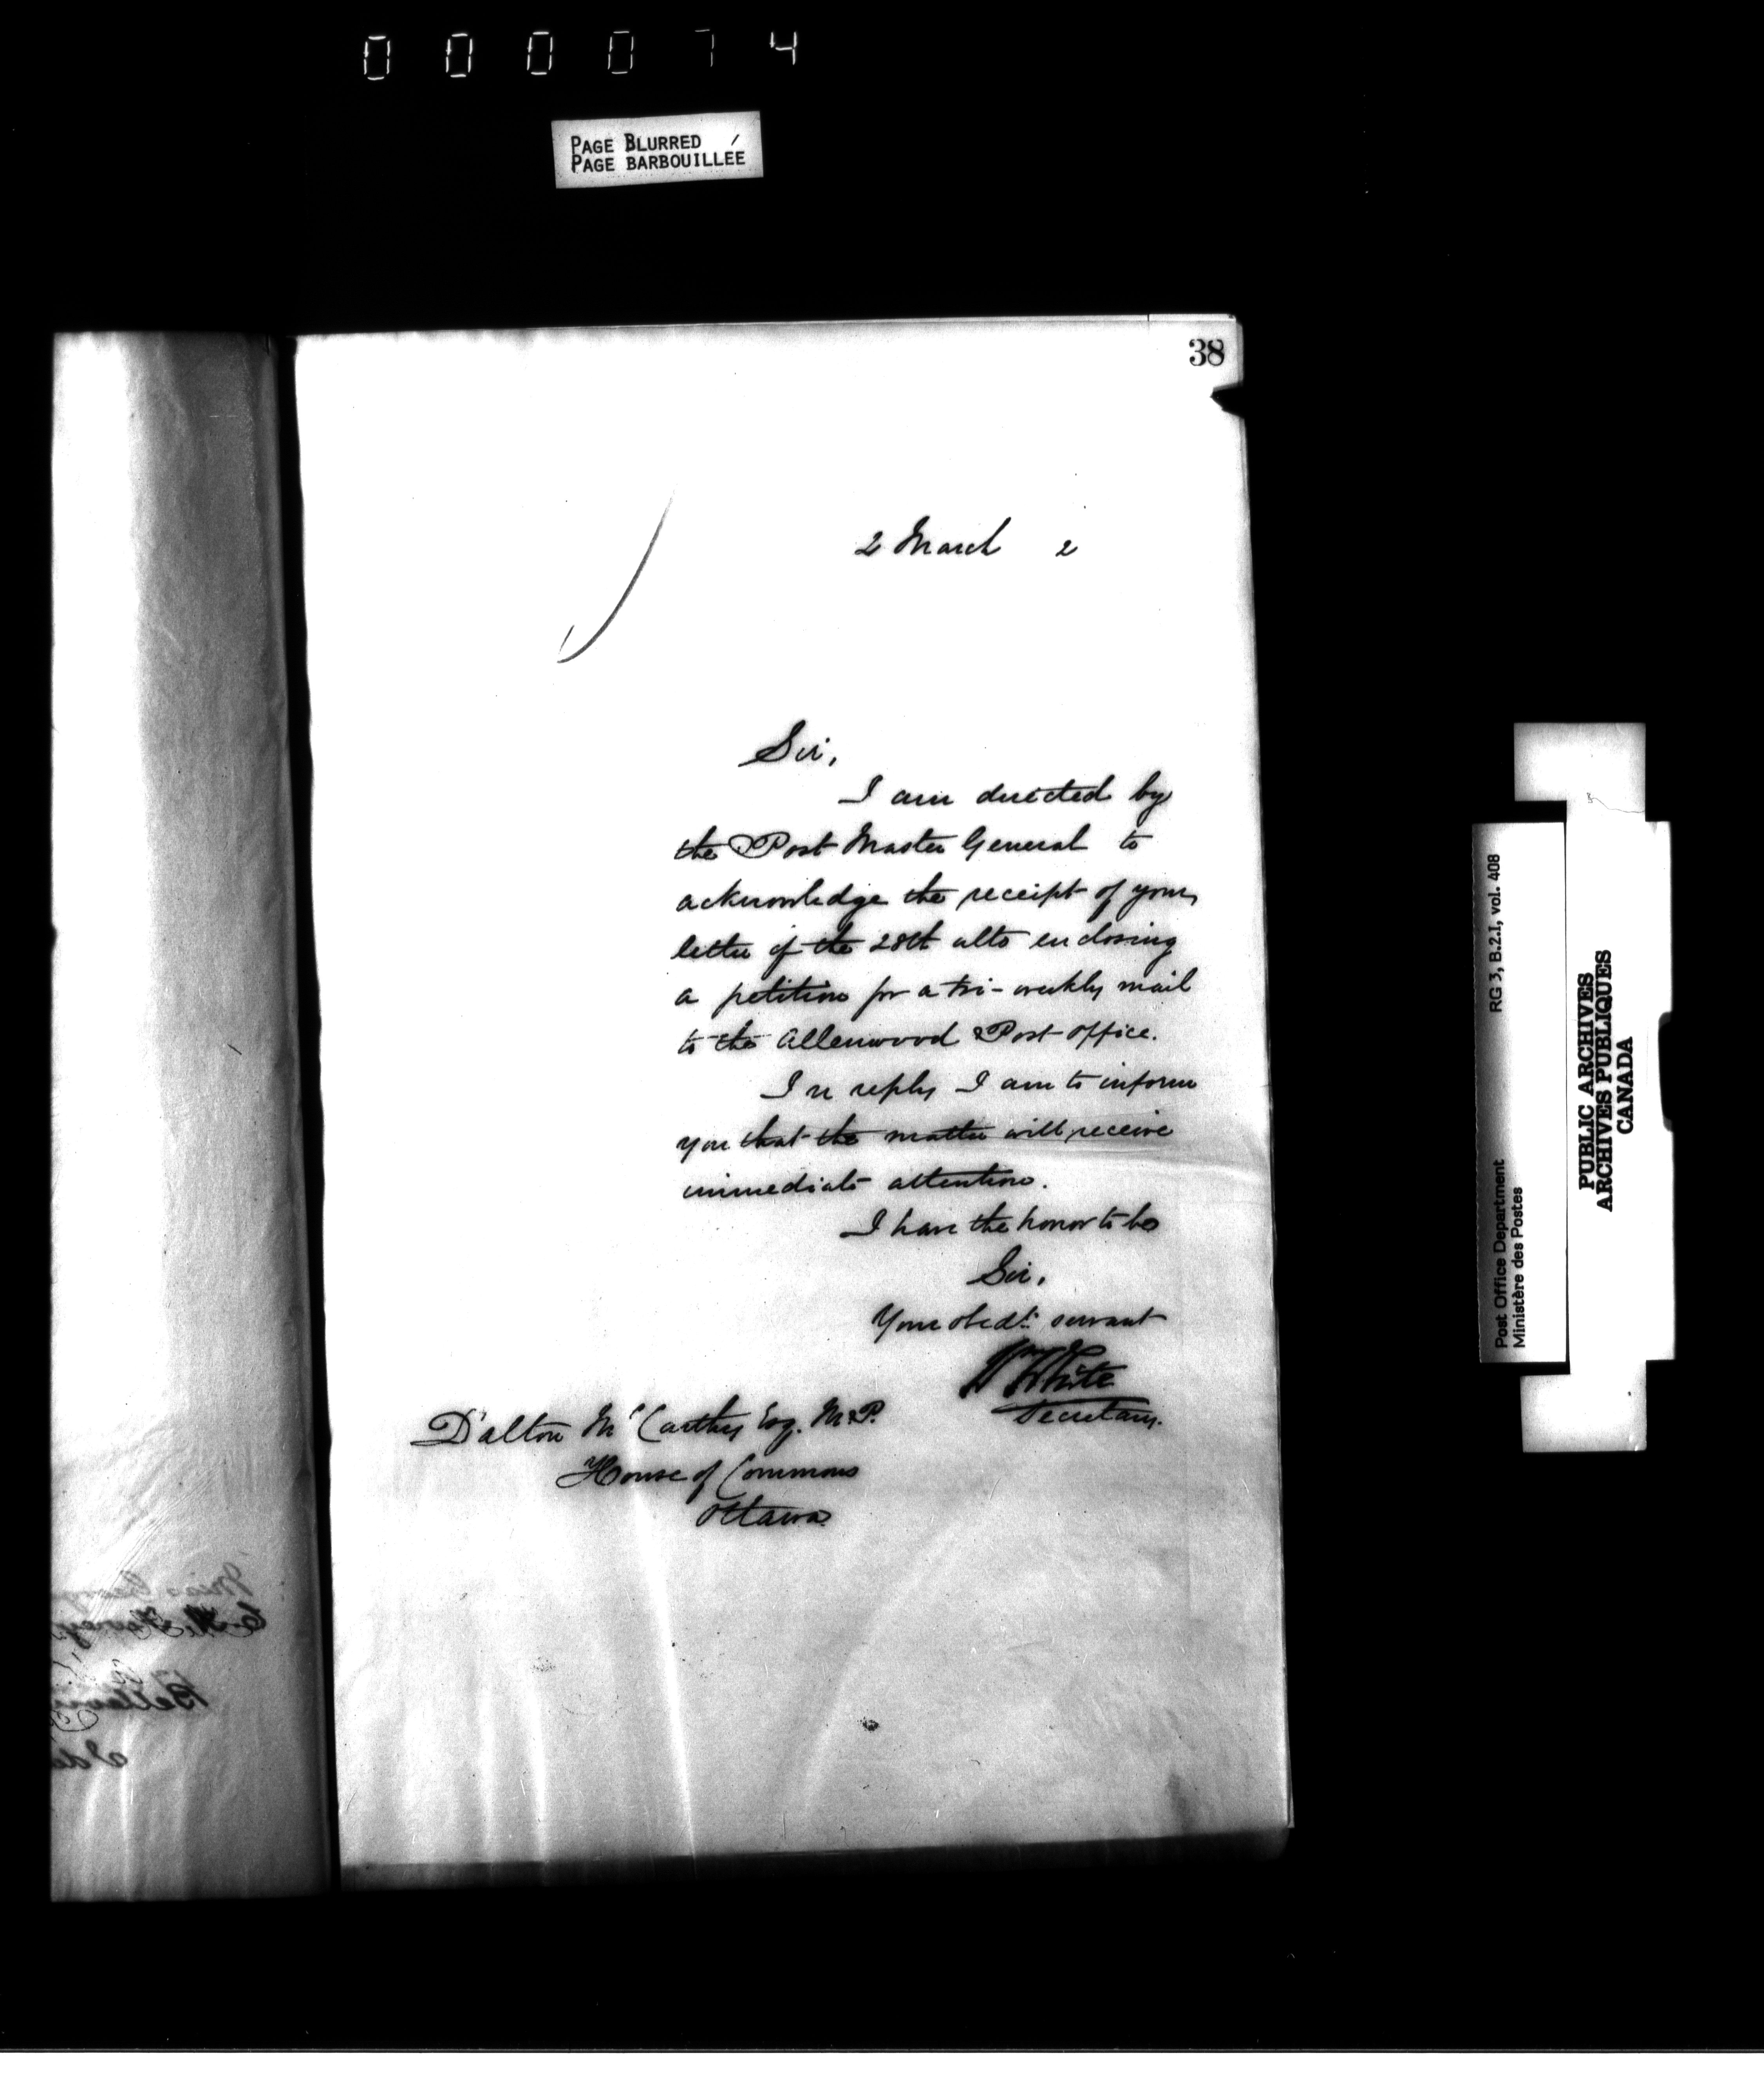 000074
PAGE BLURRED
PAGE BARBOUILLÉE
38
2 March 2
Sir,
I am directed by
the Post Master General to
acknowledge the receipt of your
letter of the 28th ulto enclosing
a petition for a tri-weekly mail
to the Allenwood Post Office.
In reply I am to inform
you that the matter will receive
immediate attention.
I have the honor to be
Sir,
Your obedt. servant
Wm White
Secretary.
D'alton McCarthy Esq. M.P.
House of Commons
Ottawa
Post Office Department RG 3, B.2.I, vol. 408
Ministère des Postes
PUBLIC ARCHIVES
ARCHIVES PUBLIQUES
CANADA